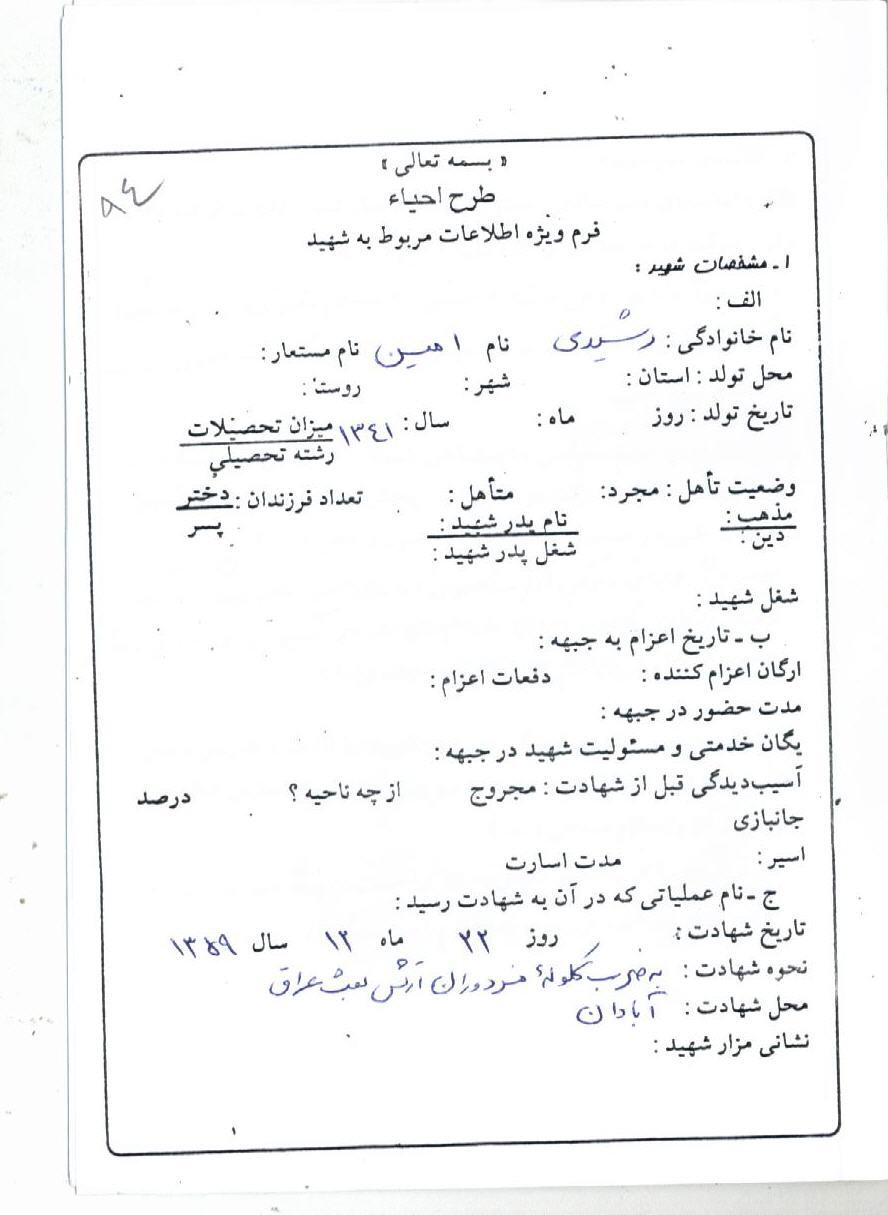 « بسمه تعالی »
۸۴
طرح احیاء
فرم ویژه اطلاعات مربوط به شهید
۱ـ مشخصات شهید :
الف :
نام خانوادگی : رشیدی نام امین نام مستعار :
محل تولد : استان : شهر : روستا :
تاریخ تولد : روز ماه : سال : ۱۳۴۱ میزان تحصیلات
رشته تحصیلی
وضعیت تأهل : مجرد : متأهل : تعداد فرزندان : دختر
پسر
مذهب : نام پدر شهید :
دین : شغل پدر شهید :
شغل شهید :
ب ـ تاریخ اعزام به جبهه :
ارگان اعزام کننده : دفعات اعزام :
مدت حضور در جبهه :
یگان خدمتی و مسئولیت شهید در جبهه :
آسیب‌دیدگی قبل از شهادت : مجروح از چه ناحیه ؟ درصد
جانبازی
اسیر : مدت اسارت
ج ـ نام عملیاتی که در آن به شهادت رسید :
تاریخ شهادت : روز ۲۲ ماه ۱۲ سال ۱۳۵۹
نحوه شهادت : به ضرب گلولهٔ مزدوران ارتش بعث عراق
محل شهادت : آبادان
نشانی مزار شهید :
۱